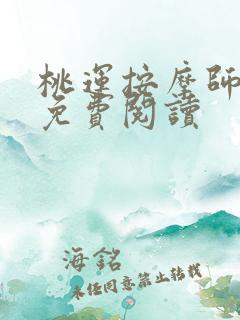 桃運按摩師
免費閱讀
海銘
未經同意禁止轉載